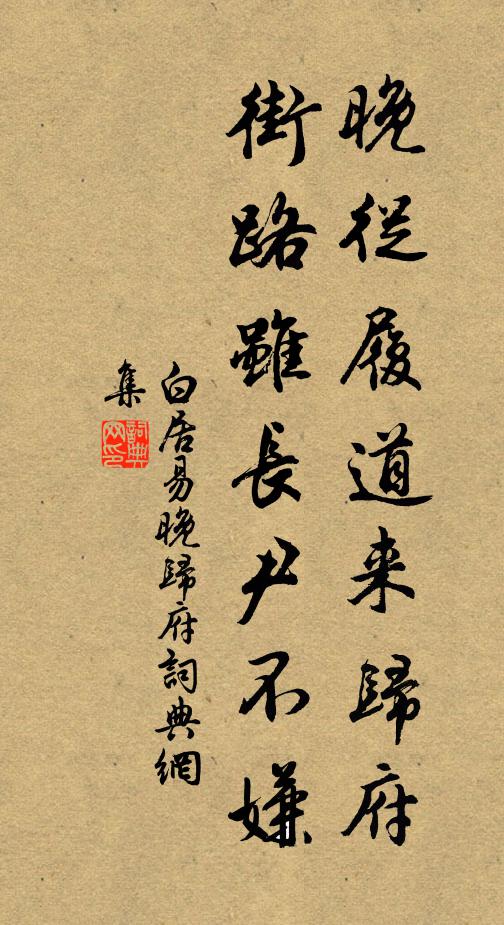 晚從履道来歸府
街路雖長尹不嫌
白居易晚歸府詞典網
集
詞典
网印